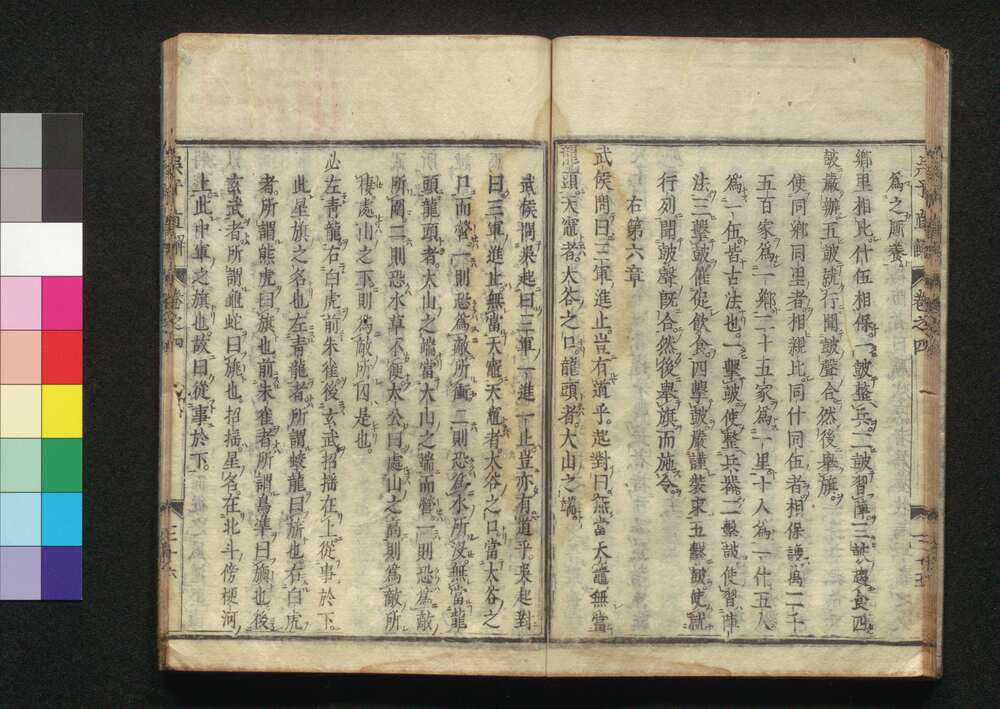 為之厮養
鄉里相比什伍相保一鼓整兵二鼓習陣三鼓趨食四
鼓嚴辦五鼓就行聞鼓聲合然後舉旗
使同鄉同里者相親比同什同伍者相保護萬二千
五百家為一鄉二十五家為一里十人為一什五人
為一伍皆古法也一擊鼓使整兵器二擊鼓使習陣
法三擊鼓催促飲食四擊鼓嚴謹裝束五擊鼓使就
行列聞鼓聲既合然後舉旗而施令
右第六章
武侯問曰三軍進止豈有道乎起對曰無當天竈無當
龍頭天竈者大谷之口龍頭者大山之端
武侯問吳起曰三軍一進一止豈亦有道乎吳起對
曰三軍進止無當天竈天竈者大谷之口當大谷之
口而營一則恐為敵所衝二則恐為水所沒無當龍
頭龍頭者大山之端當大山之端而營一則恐為敵
所圍二則恐水草不便太公曰處山之高則為敵所
棲處山之下則為敵所囚是也
必左青龍右白虎前朱雀後玄武招搖在上從事於下
此星旗之名也左青龍者所謂蛟龍曰旂也右白虎
者所謂熊虎曰旗也前朱雀者所謂鳥隼曰旟也後
玄武者所謂龜蛇曰旐也招搖星名在北斗傍梗河
上此中軍之旗也故曰從事於下
吳子直解 卷之四 三十五
吳子直解 卷之四 三十六